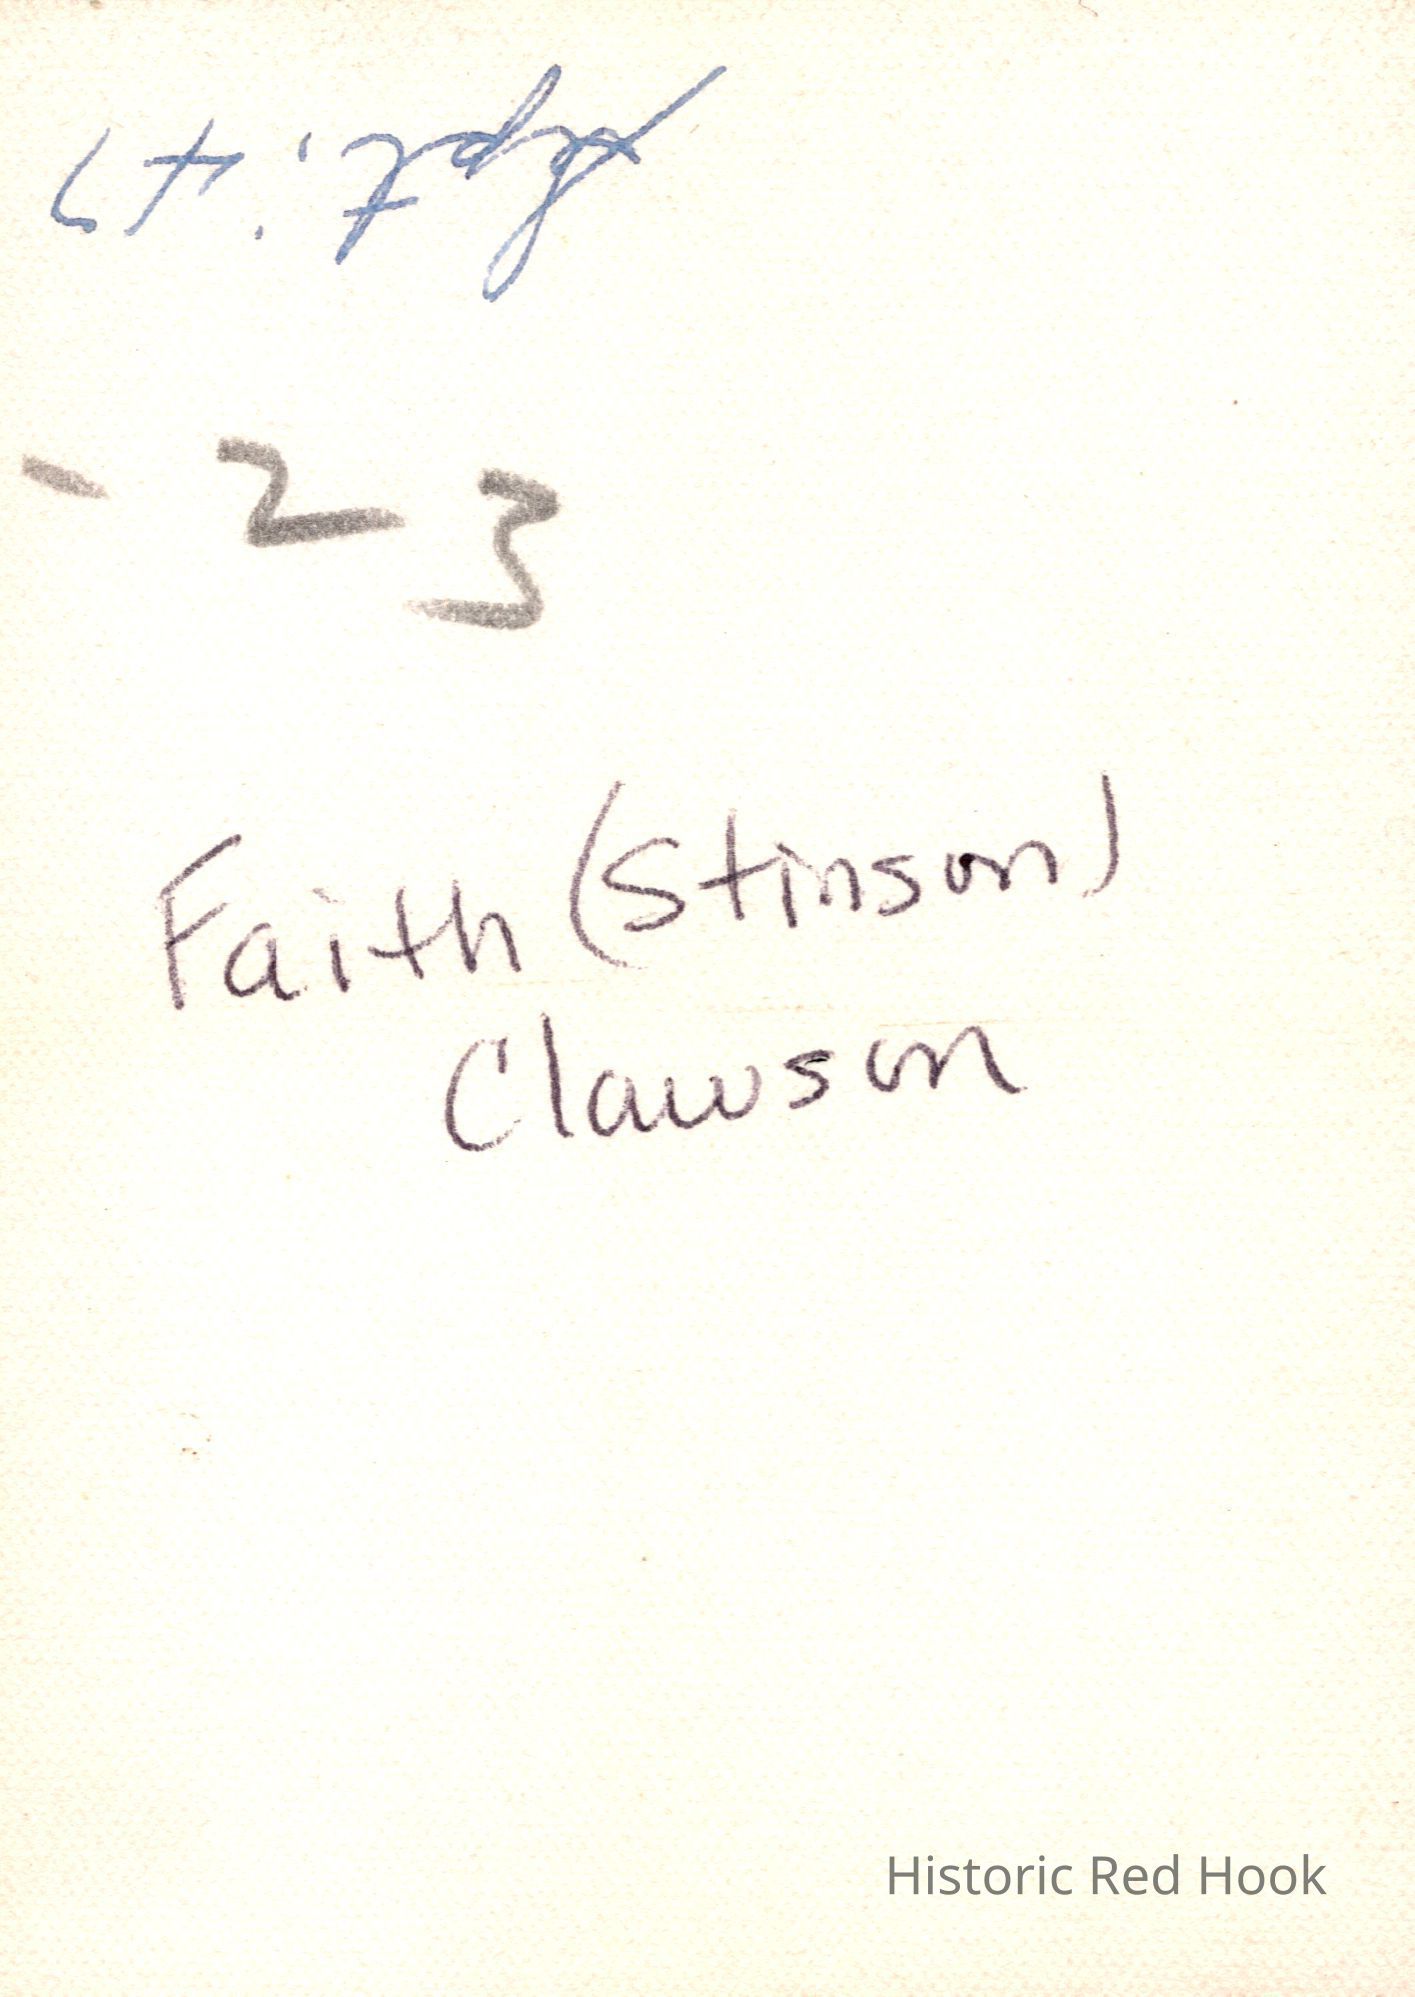 Sept. '47
- 23
Faith (Stinson)
Clawson
Historic Red Hook